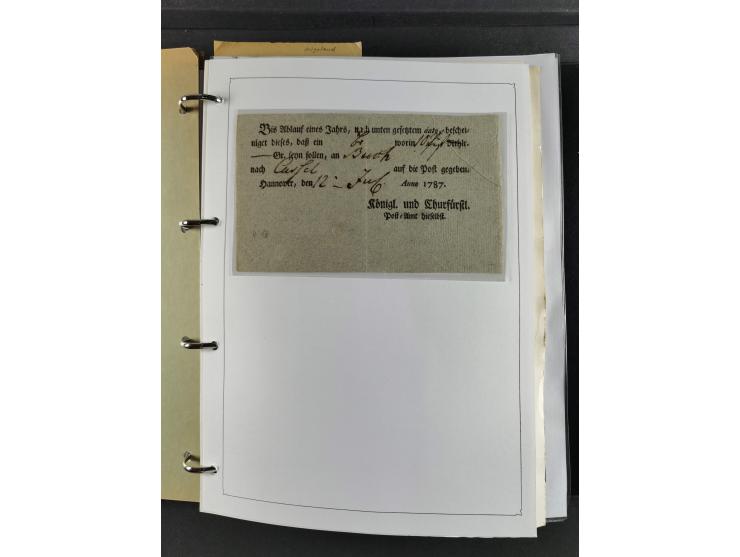 Helgoland
Bis Ablauf eines Jahrs, nach unten gesetztem dato, beschei-
niget dieses, daß ein worin Rthlr.
— Gr. seyn sollen, an
nach Cassel auf die Post gegeben.
Hannover, den 12 — Jul Anno 1787.
Königl. und Churfürstl.
Post-Amt hieselbst.